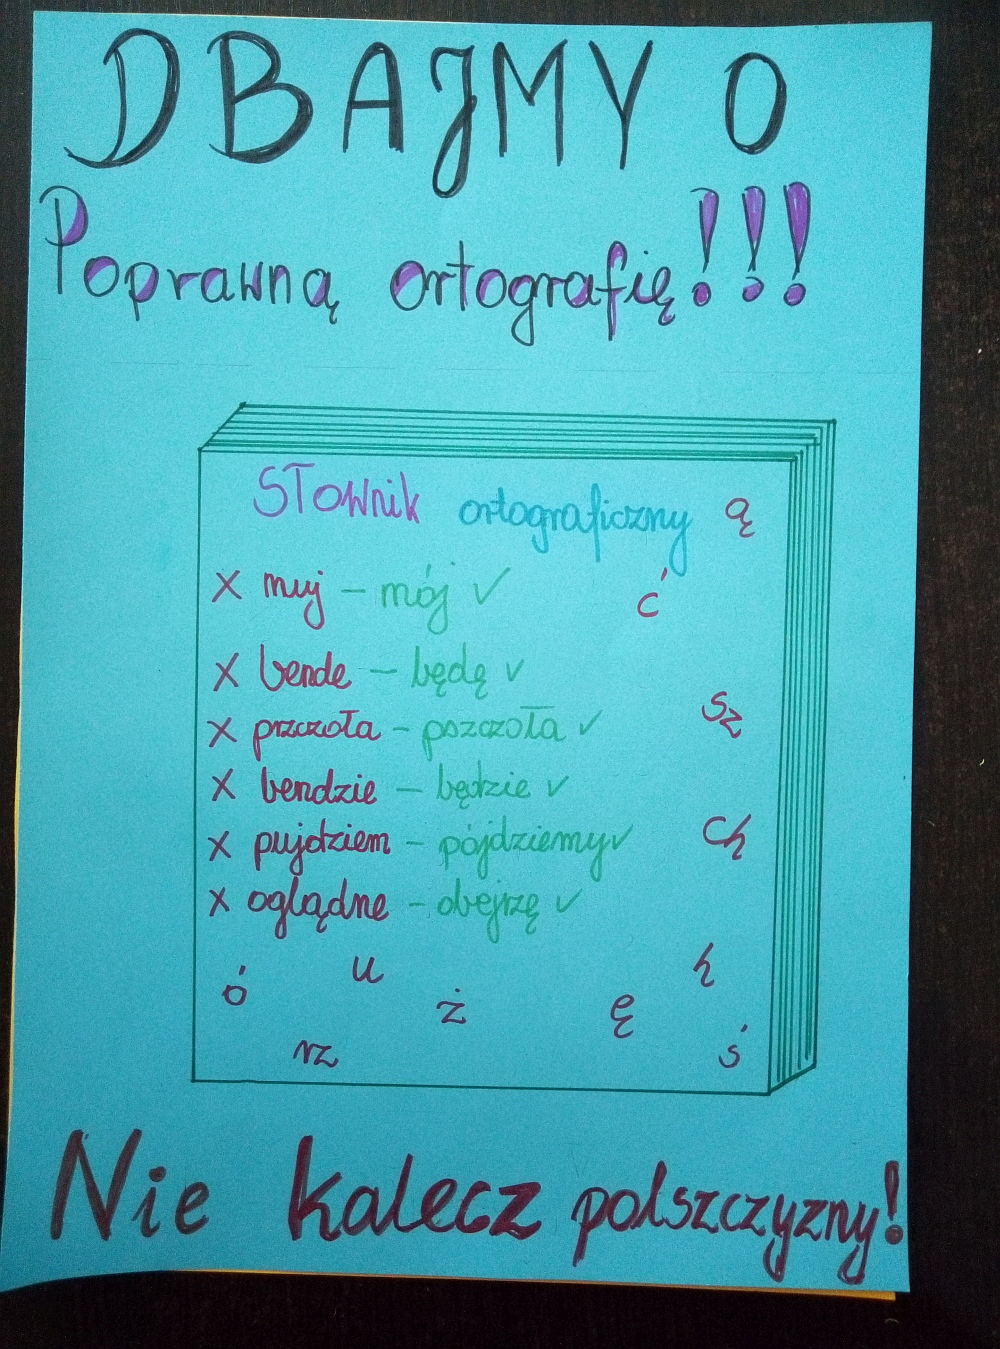 DBAJMY O
Poprawną ortografię!!!
Słownik ortograficzny ą
X muj – mój ✓ ć
X bende – będę ✓
X przczoła – pszczoła ✓ sz
X bendzie – będzie ✓
X pujdziem – pójdziemy ✓ ch
X oglądne – obejrzę ✓
ó u ż ę h
rz ś
Nie kalecz polszczyzny!